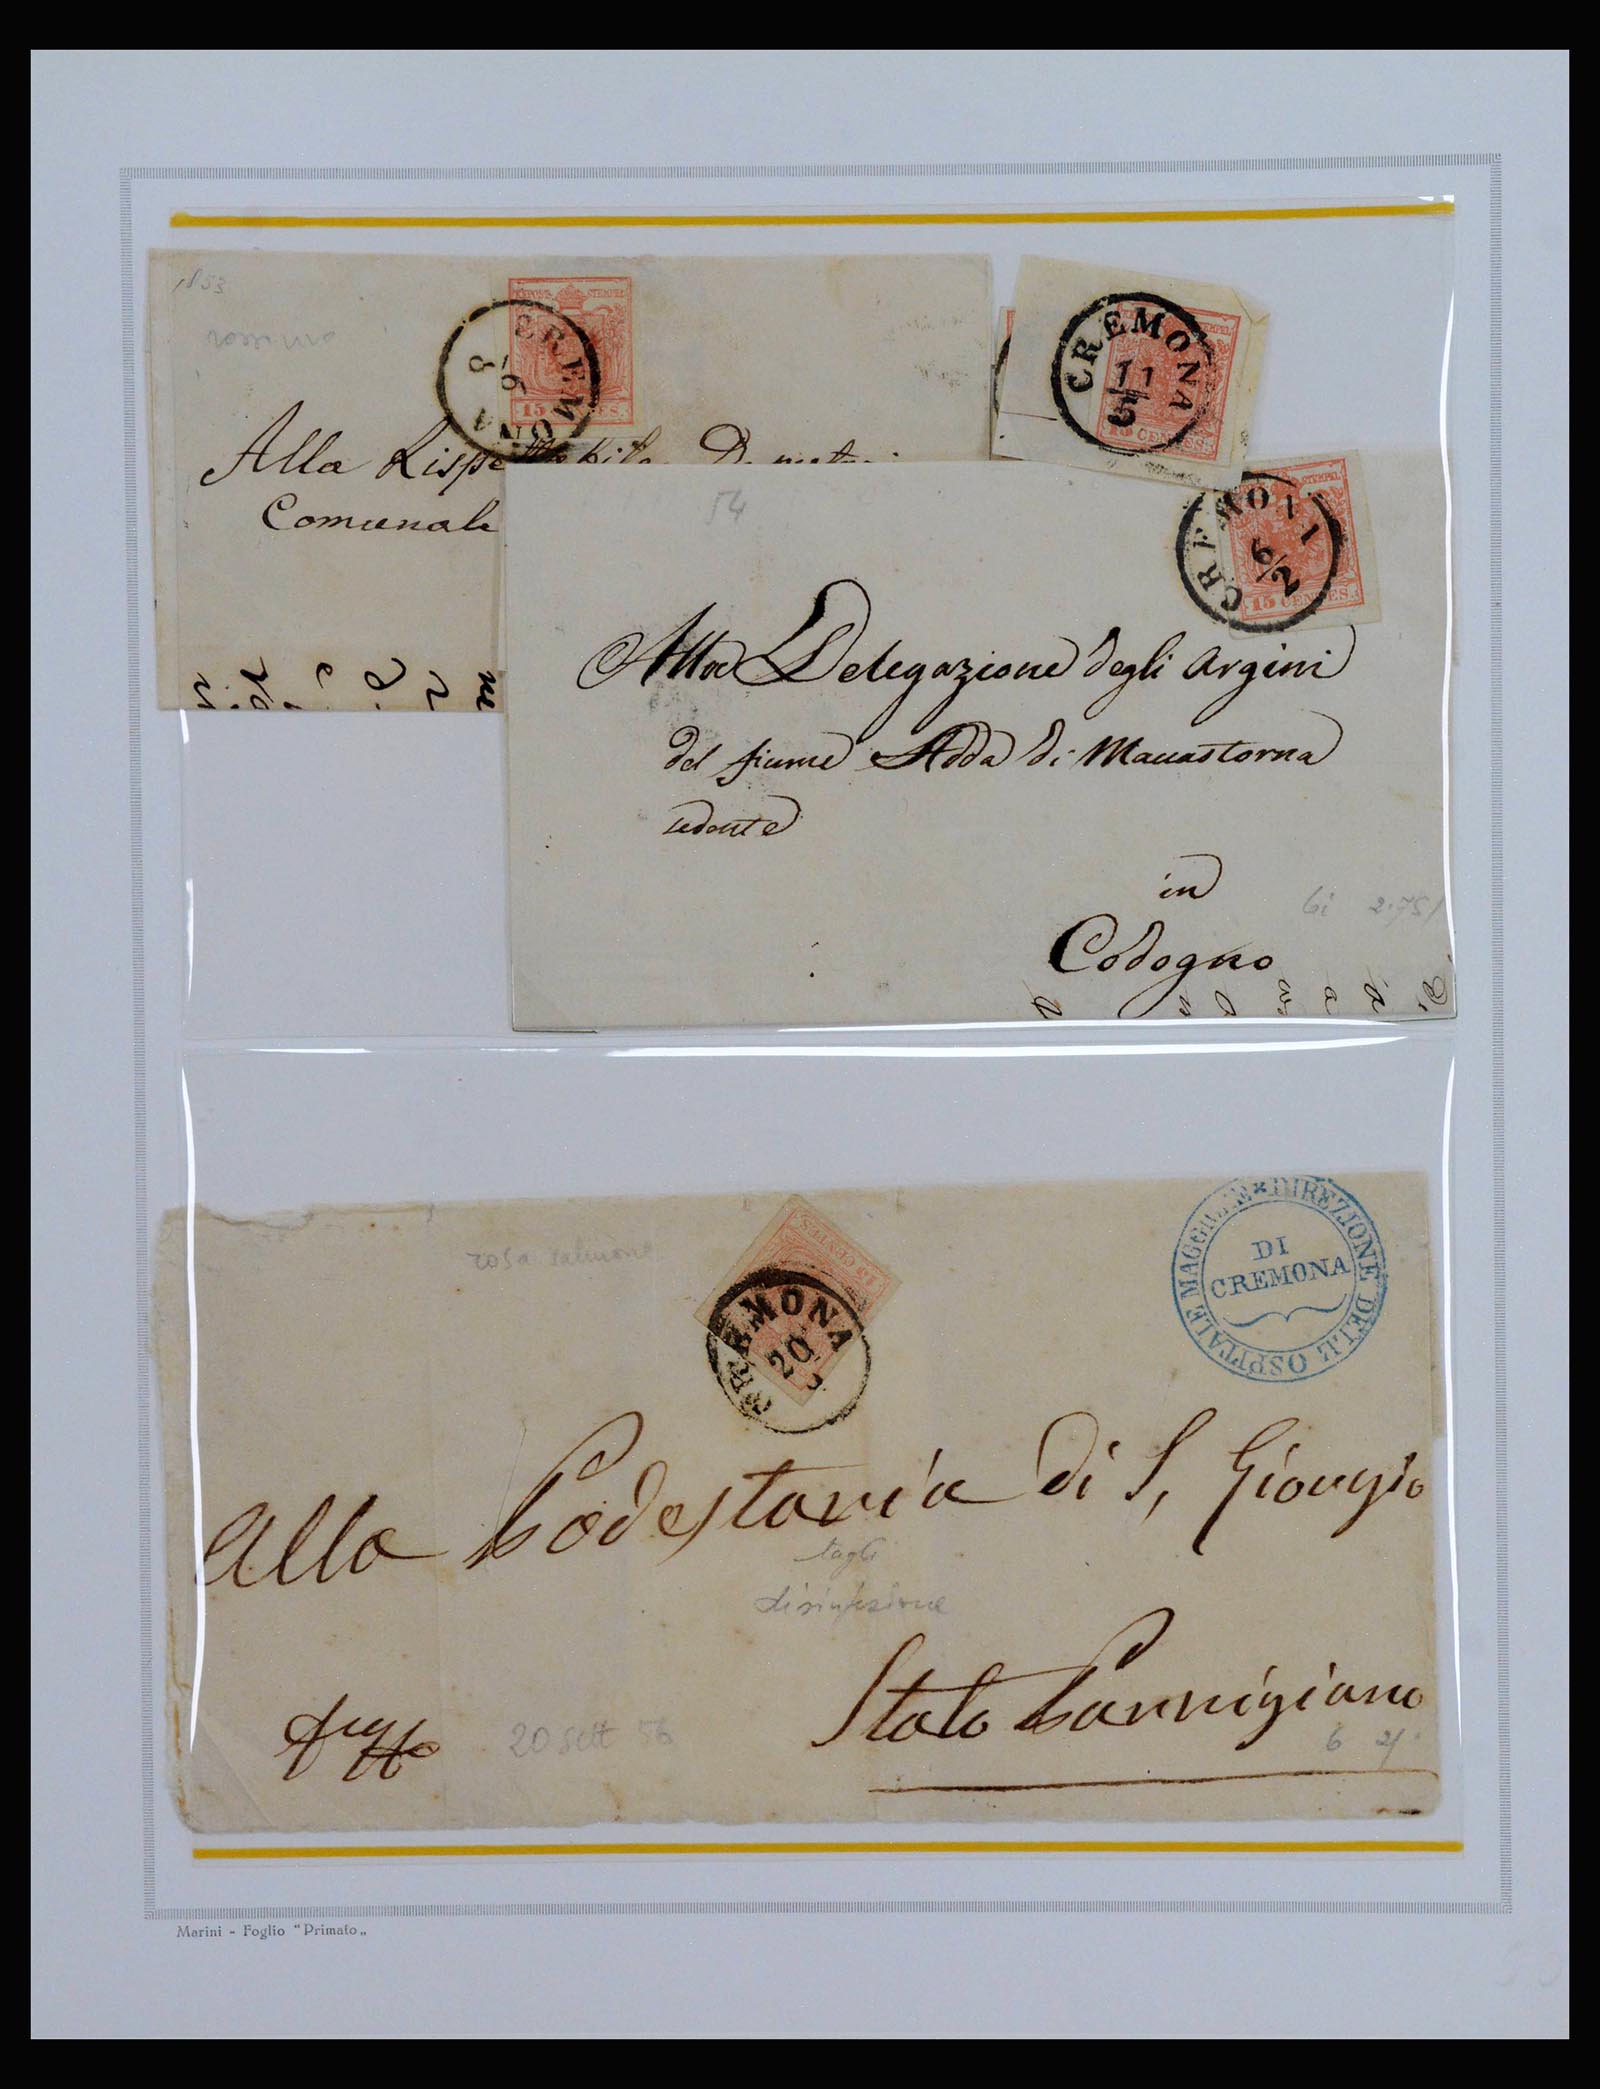 1853
CREMONA
9
8
KKPOSTS STEMPEL
15 CENTES.
Alla
Comunale
CREMONA
11
5
STEMPEL
15 CENTES.
54
CREMONA
6/2
STEMPEL
15 CENTES.
Alla Delegazione degli Argini
del fiume Adda di Maccastorna
sedente
in
Codogno
rosa salmone
15 CENTES.
CREMONA
20
DIREZIONE DELL' OSPITALE MAGGIORE
DI
CREMONA
Alla Podestaria di S. Giorgio
tagli
disinfezione
Stato Parmigiano
20 Sett 56
Marini - Foglio "Primato„